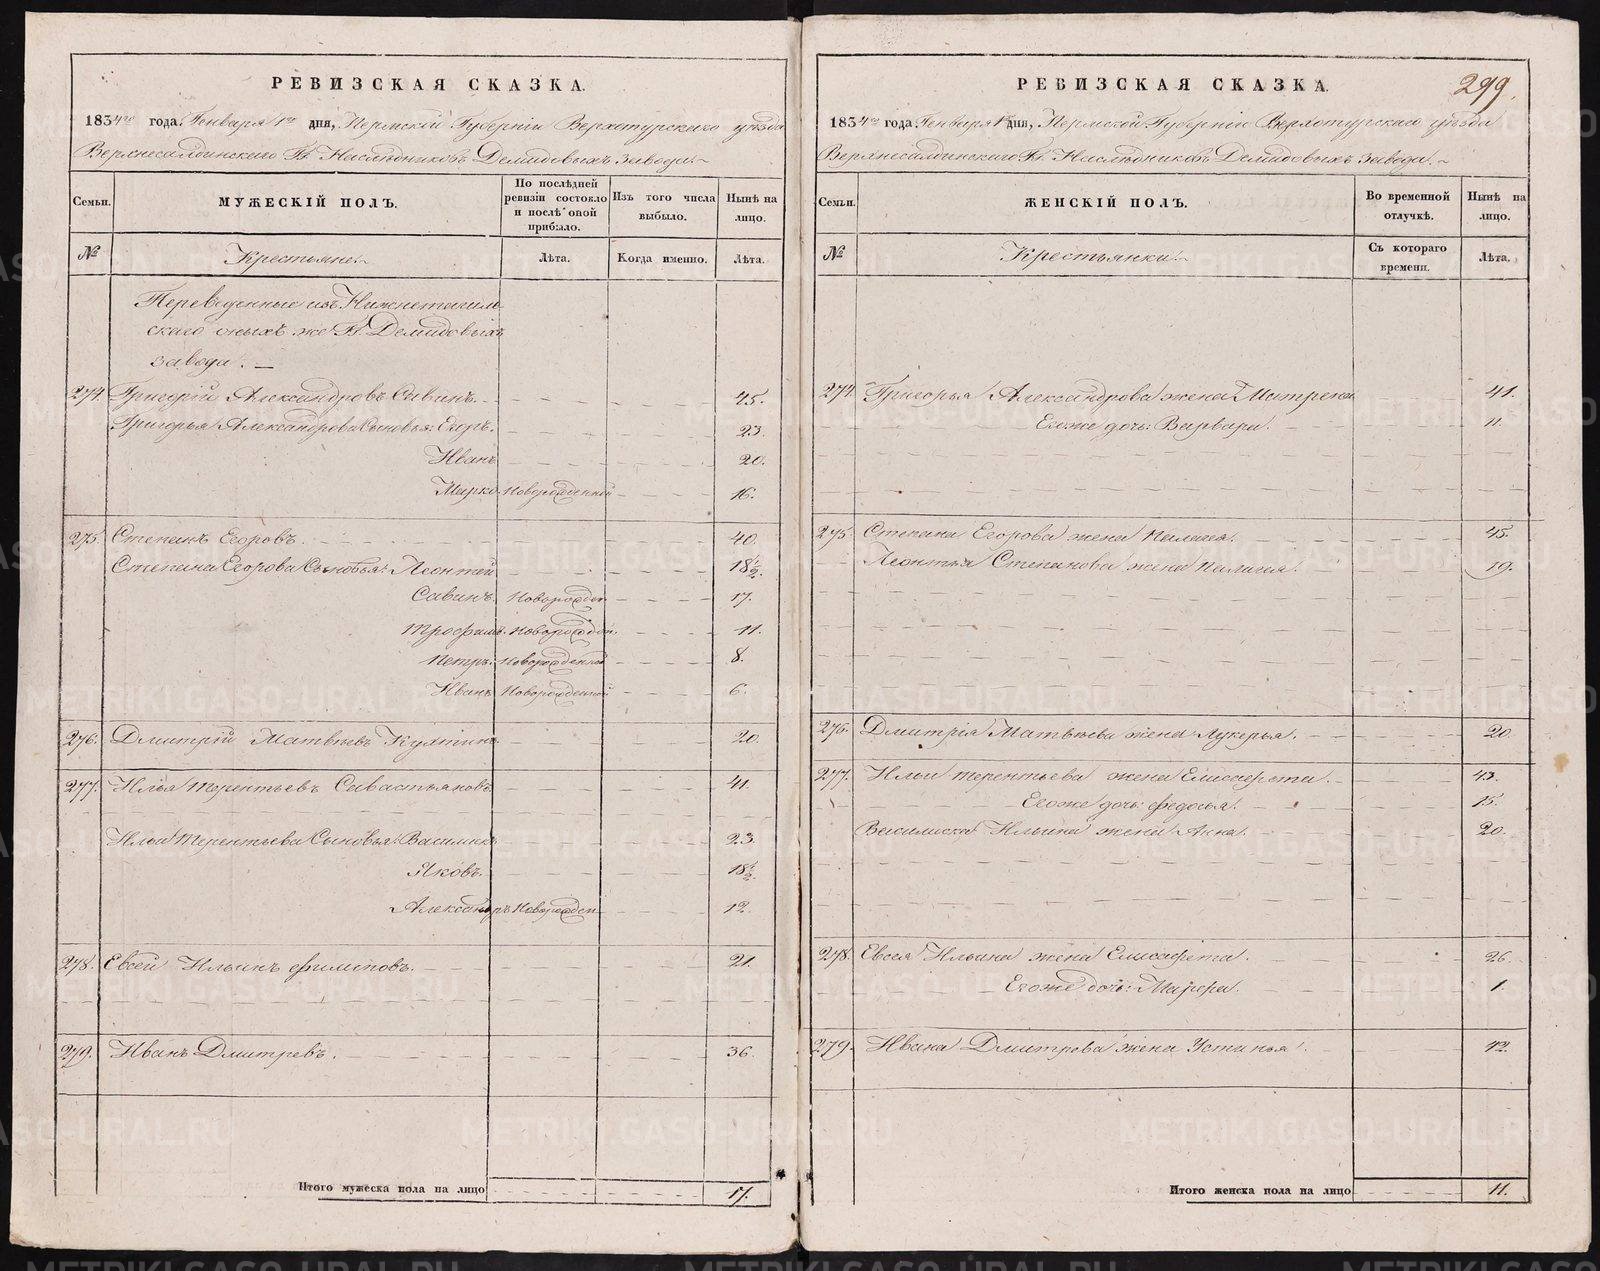 РЕВИЗСКАЯ СКАЗКА.
1834го года Генваря 1го дня, Пермской Губернiи Верхотурскаго уѣзда
Верхнесалдинскаго Гг. Наслѣдниковъ Демидовыхъ завода.
Семьи.
МУЖЕСКIЙ ПОЛЪ.
По послѣдней ревизiи состояло и послѣ оной прибыло.
Изъ того числа выбыло.
Нынѣ на лицо.
№
Крестьяне.
Лѣта.
Когда именно.
Лѣта.
Переведенные изъ Нижнетагиль-
скаго оныхъ же Гг. Демидовыхъ
завода. —
274. Григорiй Александровъ Савинъ. 45.
Григорья Александрова Сыновья: Егоръ. 23.
Иванъ 20.
Марко Новорожденной 16.
275. Степанъ Егоровъ. 40.
Степана Егорова Сыновья: Леонтей 18½.
Савинъ. Новорожден 17.
Трофимъ. Новорожден. 11.
Петръ. Новорожденной 8.
Иванъ Новорожденной 6.
276. Дмитрiй Матвѣевъ 20.
277. Илья Терентьевъ Савастьяновъ 41.
Ильи Терентьева Сыновья: Василиск 23.
Яковъ. 18½.
Александръ Новорожден 12.
278. Евсей Ильинъ Филиповъ. 21.
279. Иванъ Дмитревъ. 36.
Итого мужеска пола на лицо 17.
299.
РЕВИЗСКАЯ СКАЗКА.
1834го года Генваря 1го дня, Пермской Губернiи Верхотурскаго уѣзда
Верхнесалдинскаго Гг. Наслѣдниковъ Демидовыхъ завода.
Семьи.
ЖЕНСКIЙ ПОЛЪ.
Во временной отлучкѣ.
Нынѣ на лицо.
№
Крестьянки.
Съ котораго времени.
Лѣта.
274. Григорья Александрова жена Матрена 41.
Егоже дочь: Варвара. 11.
275. Степана Егорова жена Палагея. 45.
Леонтья Степанова жена Палагея. 19.
276. Дмитрiя Матвѣева жена Лукерья. 20.
277. Ильи Терентьева жена Елисафета. 43.
Егоже дочь: Федосья. 15.
Василиска Ильина жена Анна. 20.
278. Евсея Ильина жена Елисафета. 26.
Егоже дочь: Марфа. 1.
279. Ивана Дмитрова жена Устинья. 42.
Итого женска пола на лицо 11.
METRIKI.GASO-URAL.RU